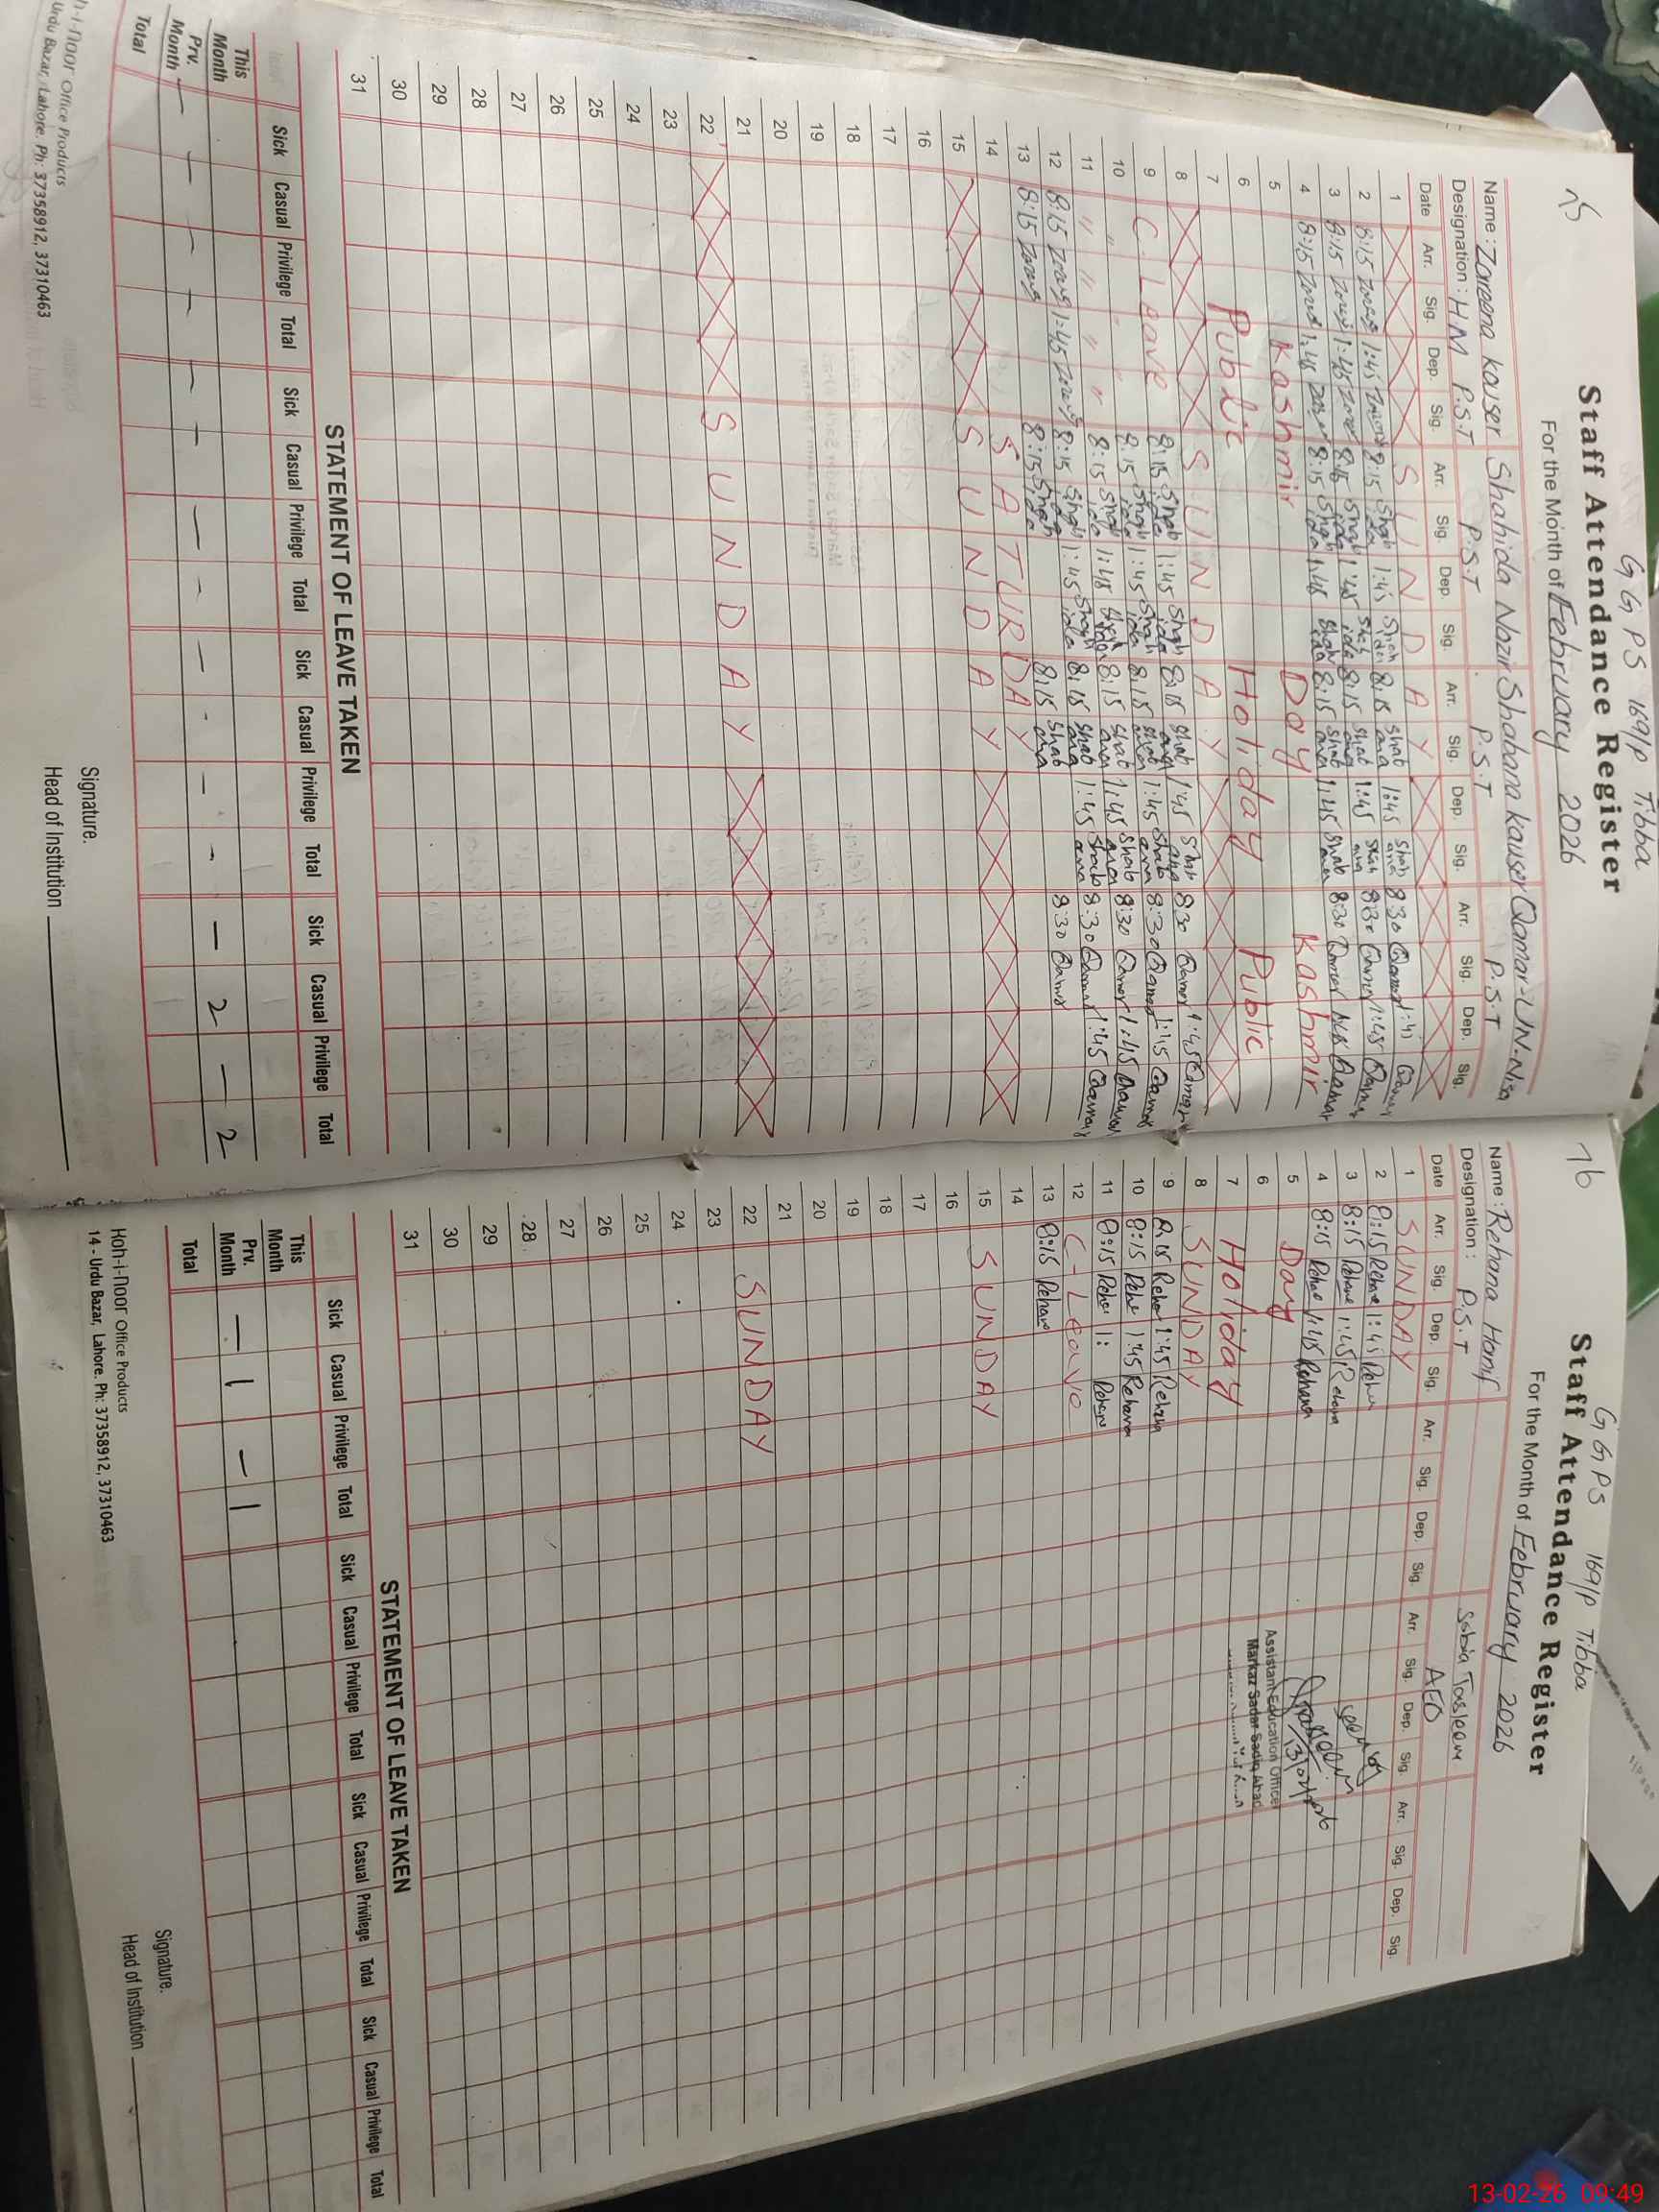 75
G G P S 169/P Tibba
Staff Attendance Register
For the Month of February 2026
Name : Zareena kauser Shahida Nazir Shabana kauser Qamar-UN-Nisa
Designation : HM P.S.T P.S.T P.S.T P.S.T
Date Arr. Sig. Dep. Sig. Arr. Sig. Dep. Sig. Arr. Sig. Dep. Sig. Arr. Sig. Dep. Sig.
1 SUNDAY
2 8:15 1:45 8:15 Shahida 1:45 Shahida 8:15 Shabana 1:45 Shabana 8:30 Qamar 1:45 Qamar
3 8:15 1:45 8:15 Shahida 1:45 Shahida 8:15 Shabana 1:45 Shabana 8:30 Qamar 1:45 Qamar
4 8:15 1:45 8:15 Shahida 1:45 Shahida 8:15 Shabana 1:45 Shabana 8:30 Qamar Qamar
5 Kashmir Day Kashmir
6 Public Holiday Public
7
8 SUNDAY
9 C. Leave 8:15 Shahida 1:45 Shahida 8:15 Shabana 1:45 Shabana 8:30 Qamar 1:45 Qamar
10 " " " 8:15 Shahida 1:45 Shahida 8:15 Shabana 1:45 Shabana 8:30 Qamar 1:45 Qamar
11 " " " " 8:15 Shahida 1:45 Shahida 8:15 Shabana 1:45 Shabana 8:30 Qamar 1:45 Qamar
12 8:15 1:45 8:15 Shahida 1:45 Shahida 8:15 Shabana 1:45 Shabana 8:30 Qamar 1:45 Qamar
13 8:15 8:15 Shahida 8:15 Shabana 8:30 Qamar
14 SATURDAY
15 SUNDAY
16
17
18
19
20
21
22 SUNDAY
23
24
25
26
27
28
29
30
31
STATEMENT OF LEAVE TAKEN
Sick Casual Privilege Total Sick Casual Privilege Total Sick Casual Privilege Total Sick Casual Privilege Total
This Month
Prv. Month — — — — — — — — — - — - — 2 — 2
Total
Signature.
Head of Institution
h-i-Noor Office Products
Urdu Bazar, Lahore. Ph: 37358912, 37310463
76
G G P S 169/P Tibba
Staff Attendance Register
For the Month of February 2026
Name : Rehana Hanif Sabia Tasleem
Designation : P.S.T AEO
Date Arr. Sig. Dep. Sig. Arr. Sig. Dep. Sig. Arr. Sig. Dep. Sig. Arr. Sig. Dep. Sig.
1 SUNDAY
2 8:15 Rehana 1:45 Rehana
3 8:15 Rehana 1:45 Rehana
4 8:15 Rehana 1:45 Rehana
5 Day
6
7 Holiday
8 SUNDAY
9 8:15 Rehana 1:45 Rehana
10 8:15 Rehana 1:45 Rehana
11 8:15 Rehana 1: Rehana
12 C-Leave
13 8:15 Rehana
14
15 SUNDAY
16
17
18
19
20
21
22 SUNDAY
23
24
25
26
27
28
29
30
31
Assistant Education Officer
Markaz Sadar Sadiq Abad
STATEMENT OF LEAVE TAKEN
Sick Casual Privilege Total Sick Casual Privilege Total Sick Casual Privilege Total Sick Casual Privilege Total
This Month
Prv. Month — 1 — 1
Total
Signature.
Head of Institution
Koh-i-Noor Office Products
14 - Urdu Bazar, Lahore. Ph: 37358912, 37310463
13-02-26 09:49